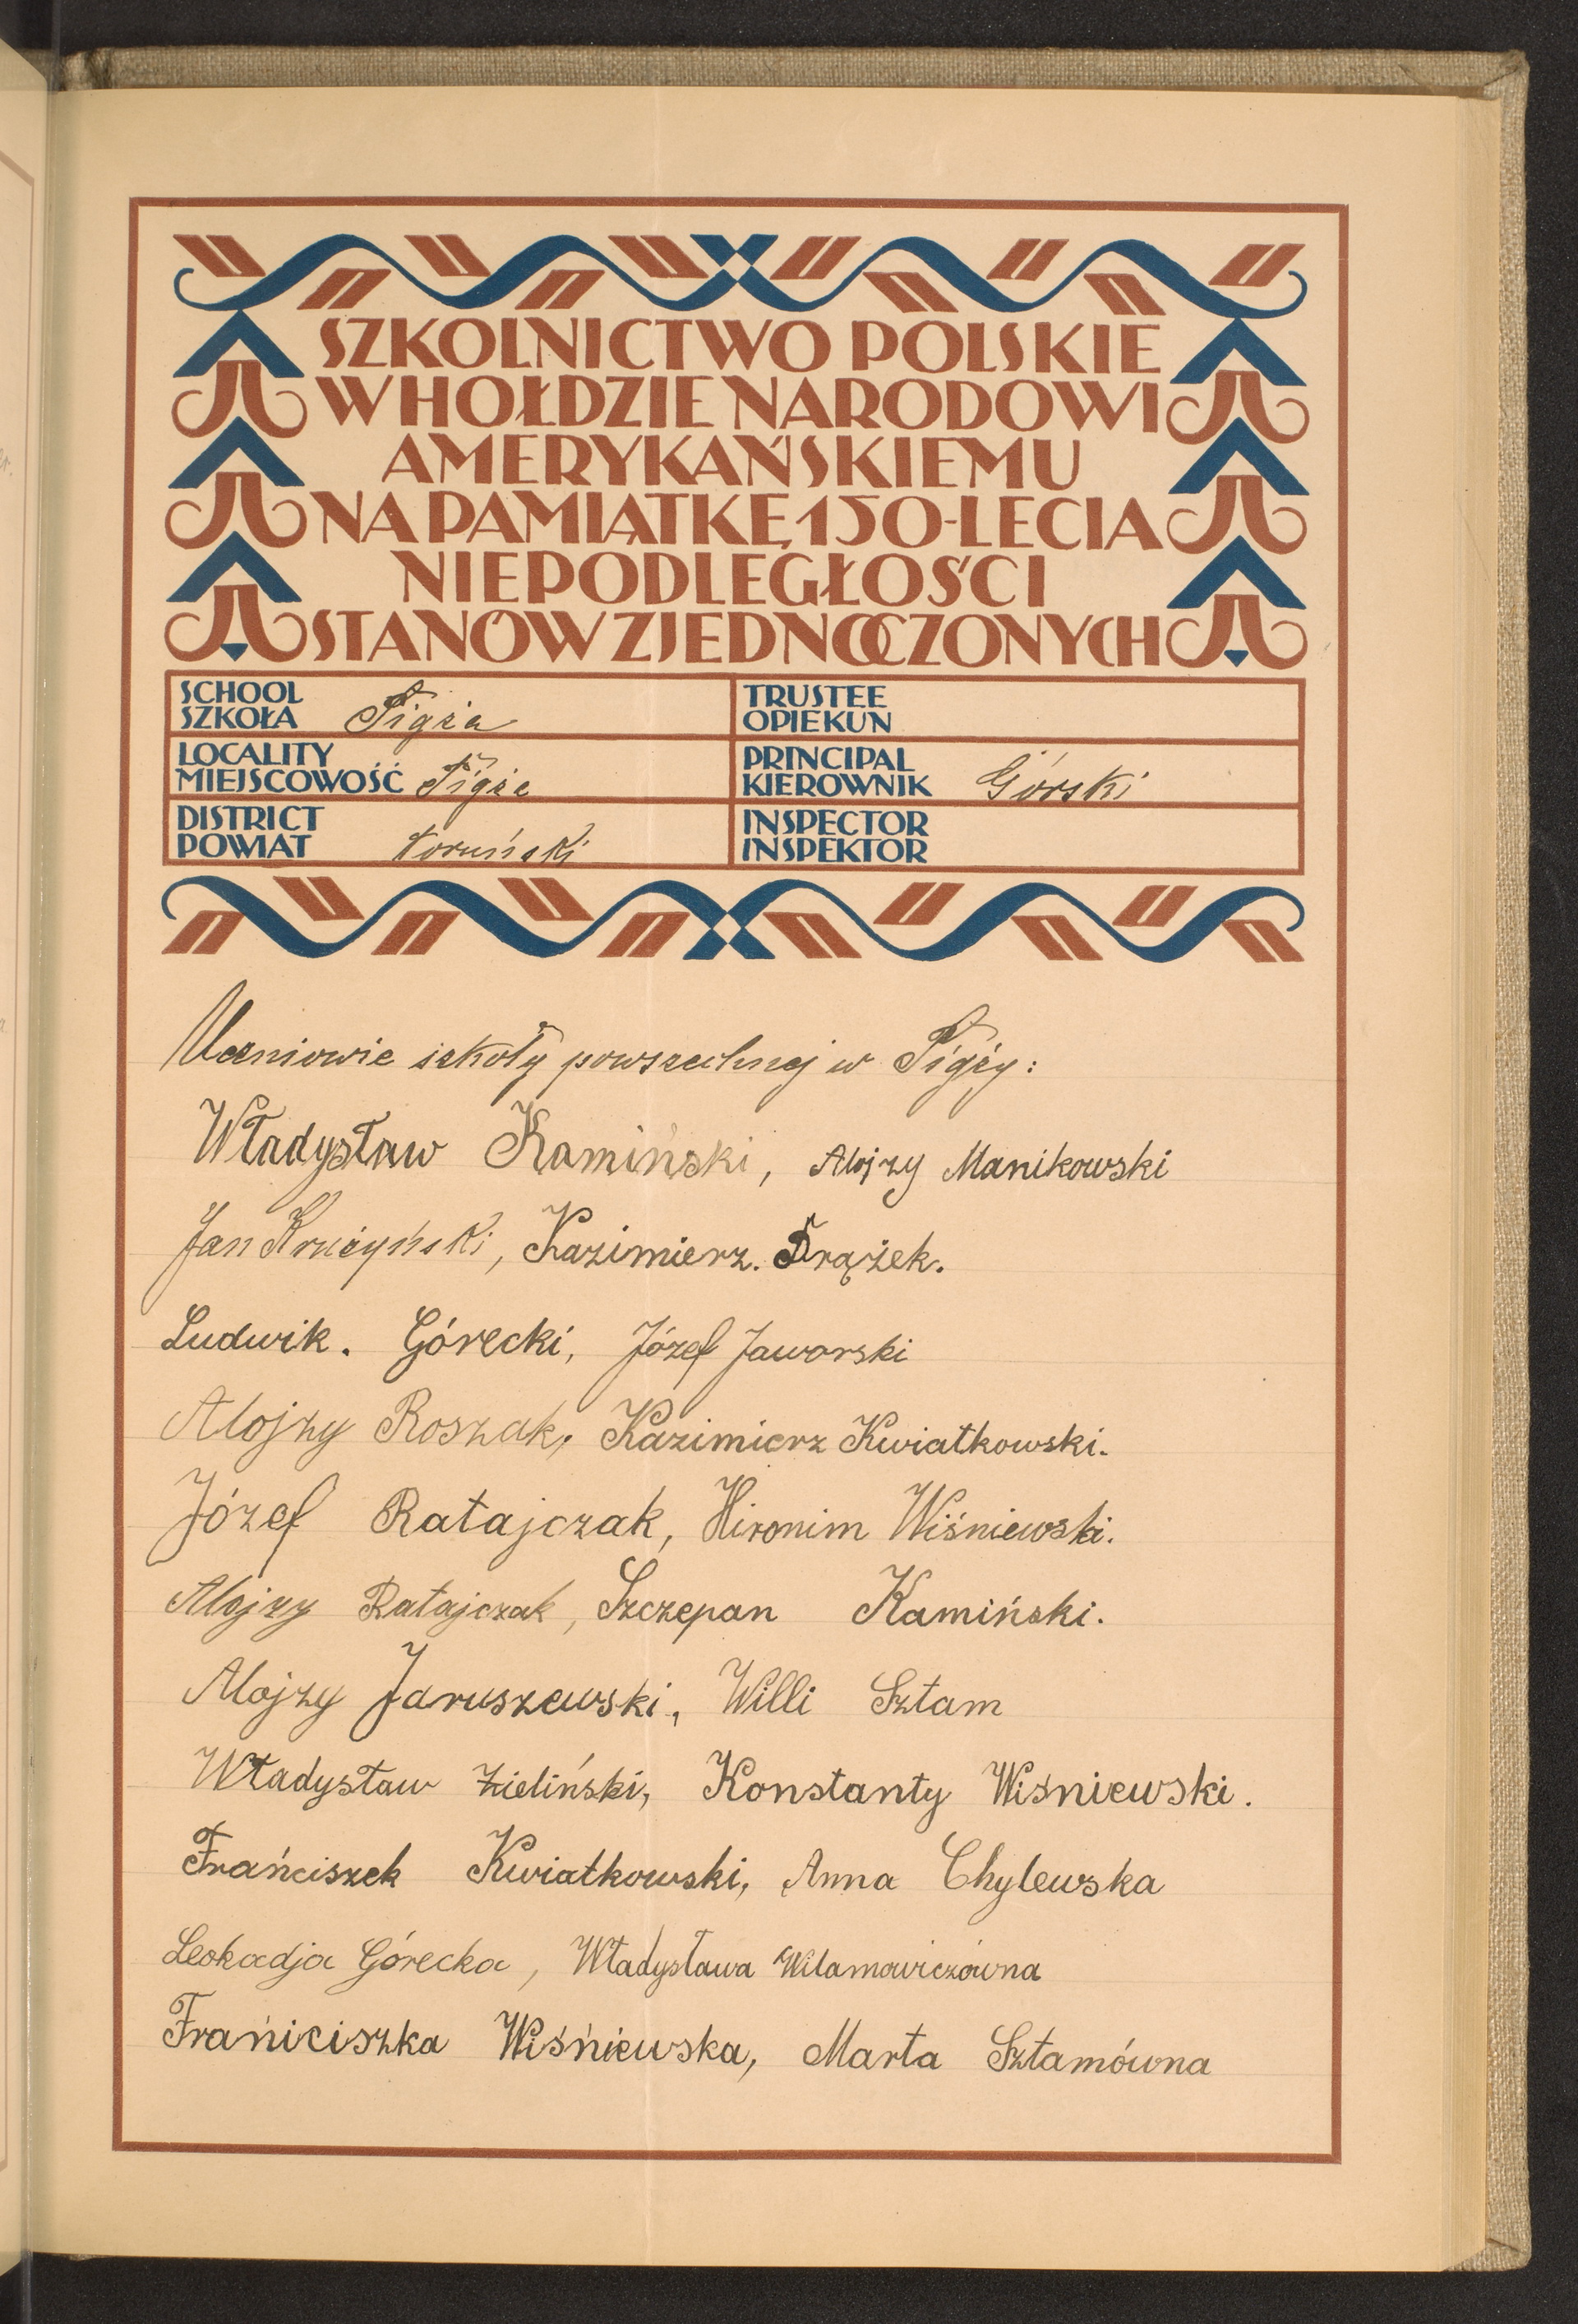 SZKOLNICTWO POLSKIE
W HOŁDZIE NARODOWI
AMERYKAŃSKIEMU
NA PAMIĄTKĘ 150-LECIA
NIEPODLEGŁOŚCI
STANÓW ZJEDNOCZONYCH
SCHOOL
SZKOŁA Pigża
TRUSTEE
OPIEKUN
LOCALITY
MIEJSCOWOŚĆ Pigża
PRINCIPAL
KIEROWNIK Górski
DISTRICT
POWIAT toruński
INSPECTOR
INSPEKTOR
Uczniowie szkoły powszechnej w Pigży:
Władysław Kamiński, Alojzy Manikowski
Jan Krużyński, Kazimierz. Drążek.
Ludwik. Górecki, Józef Jaworski
Alojzy Roszak, Kazimierz Kwiatkowski.
Józef Ratajczak, Hironim Wiśniewski.
Alojzy Ratajczak, Szczepan Kamiński.
Alojzy Jaruszewski, Willi Sztam
Władysław Zieliński, Konstanty Wiśniewski.
Frańciszek Kwiatkowski, Anna Chylewska
Leokadja Górecka, Władysława Wilamowiczówna
Frańiciszka Wiśńiewska, Marta Sztamówna